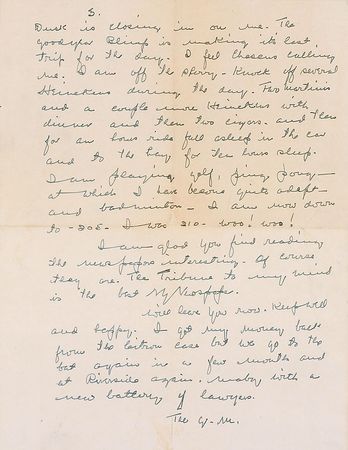 5.
Dusk is closing in on me. The
goodyear Blimp is making its last
trip for the day. I feel Chasens calling
me. I am off the sherry - Knock off several
Heinekens during the day. Two martinis
and a couple more Heinekens with
dinner and then two cigars. and then
for an hours ride fall asleep in the car
and to the hay for ten hours sleep.
I am playing golf, ping pong -
at which I have become quite adept -
and badminton - I am now down
to - 205 - I was 210 - woo! woo!
I am glad you find reading
the newspapers interesting. Of course
they are. The Tribune to my mind
is the best NY Newspaper.
Will leave you now. Keep well
and happy. I got my money back
from the cartoon case but we go to the
bat again in a few months and
at Riverside again. maybe with a
new battery of lawyers.
The G. M.